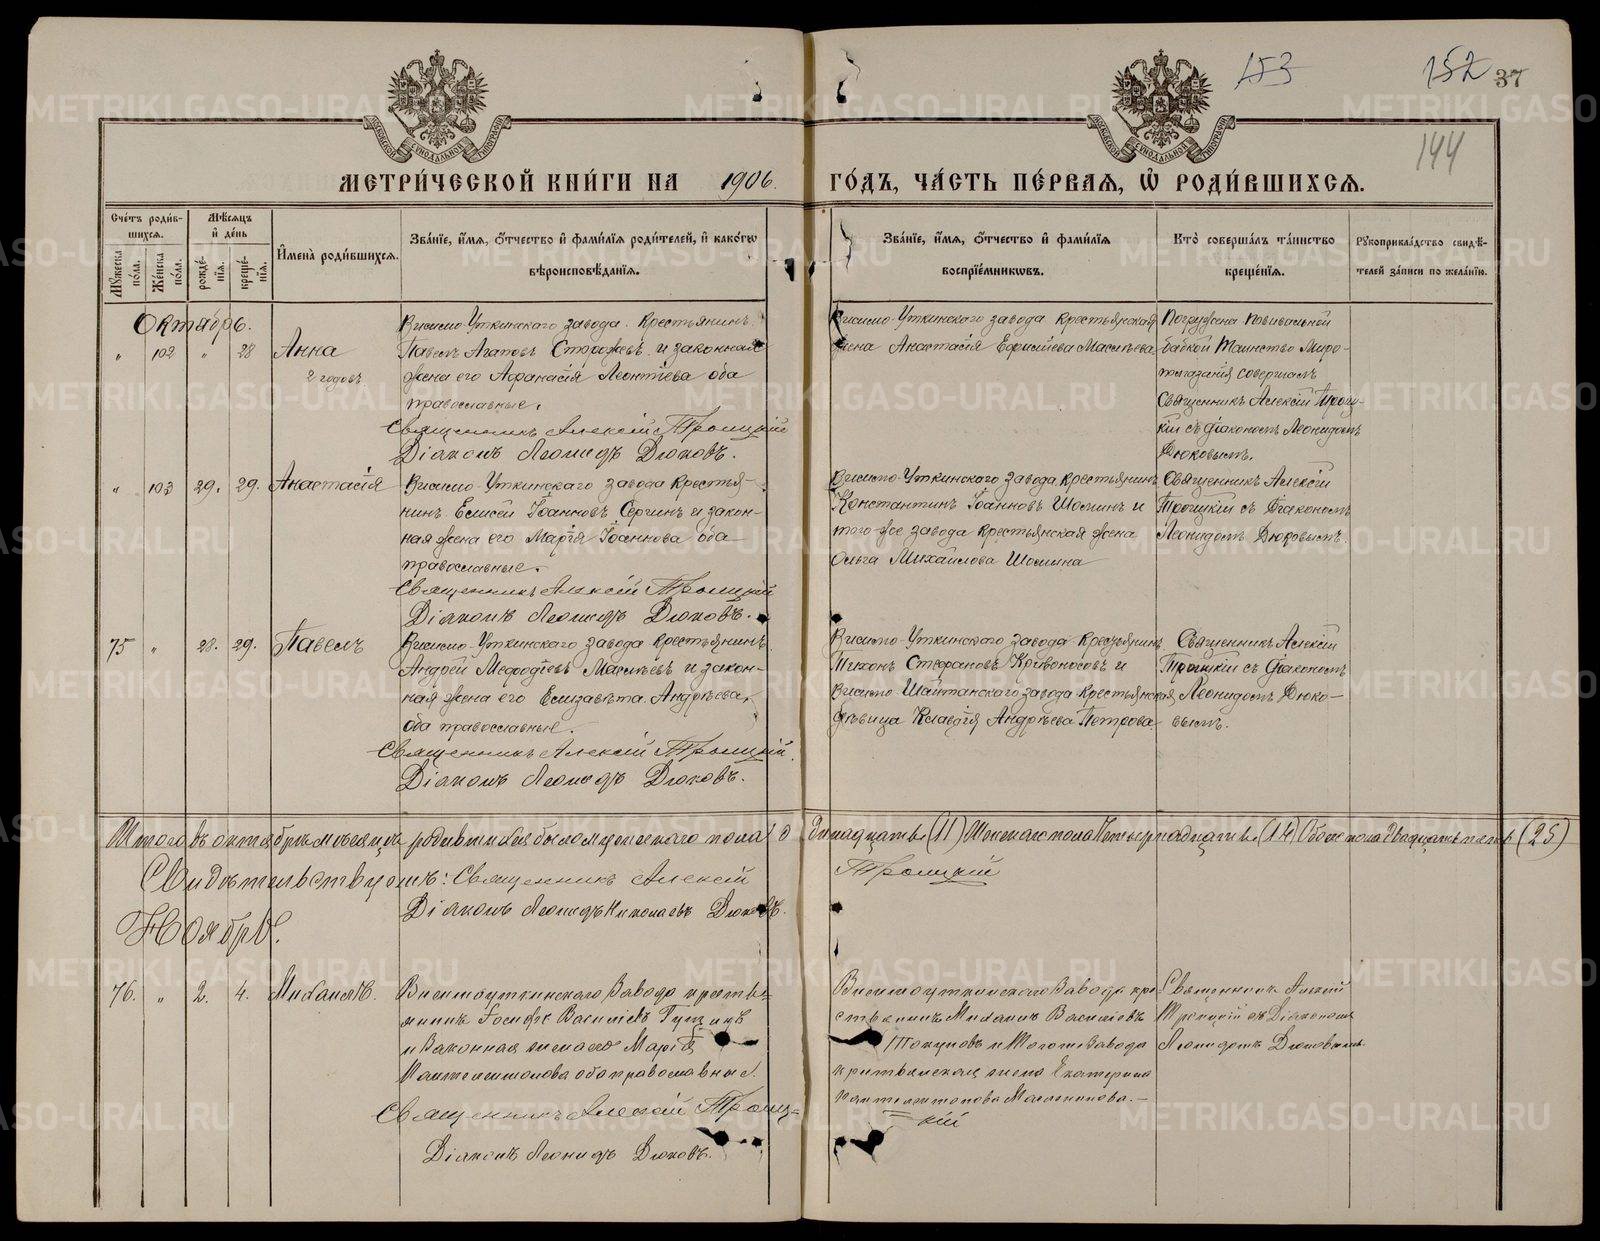 153
152 37
144
МЕТРИ́ЧЕСКОЙ КНИ́ГИ НА 1906. ГО́ДЪ, ЧА́СТЬ ПЕ́РВАЯ, Ѡ҆ РОДИ́ВШИХСЯ.
Сче́тъ роди́вшихся.
Мꙋ́жеска по́ла.
Же́нска по́ла.
Мѣ́сяцъ и҆ де́нь
рожде́нїя.
креще́нїя.
И҆мена̀ роди́вшихся.
Зва́нїе, и҆́мя, ѻ҆́тчество и҆ фами́лїя роди́телей, и҆ како́гѡ вѣроисповѣ́данїя.
Зва́нїе, и҆́мя, ѻ҆́тчество и҆ фами́лїя воспрїе́мникѡвъ.
Кто̀ соверша́лъ та́инство креще́нїя.
Рꙋкоприкла́дство свидѣ́телей за́писи по жела́нїю.
Октябрь.
" 102 " 28 Анна
2 годовъ
Висимо-Уткинскаго завода крестьянинъ
Павелъ Агаповъ Сторожевъ и законная
жена его Афанасія Леонтіева оба
православные.
Священникъ Алексій Троицкій
Діаконъ Леонидъ Дюковъ.
Висимо-Уткинскаго завода крестьянская
жена Анастасія Ефимиева Масилева
Погружена повивальной
бабкой Таинство Миро-
помазанія совершалъ
Священникъ Алексій Троиц-
кій съ діакономъ Леонидомъ
Дюковымъ.
" 103 29. 29. Анастасія
Висимо-Уткинскаго завода крестья-
нинъ Елисей Іоанновъ Сергинъ и закон-
ная жена его Марія Іоаннова оба
православные.
Священникъ Алексій Троицкій
Діаконъ Леонидъ Дюковъ.
Висимо-Уткинскаго завода крестьянинъ
Константинъ Іоанновъ Шоминъ и
того-же завода крестьянская жена
Ольга Михайлова Шомина
Священникъ Алексій
Троицкій съ Діакономъ
Леонидомъ Дюковымъ.
75 " 28. 29. Павелъ
Висимо-Уткинскаго завода крестьянинъ
Андрей Мефодіевъ и закон-
ная жена его Елизавета Андреева,
оба православные.
Священникъ Алексій Троицкій.
Діаконъ Леонидъ Дюковъ.
Висимо-Уткинскаго завода крестьянинъ
Тихонъ Стефановъ Кривоносовъ и
Висимо-Шайтанскаго завода крестьянская
дѣвица Клавдія Андреева Петрова.
Священникъ Алексій
Троицкій съ діакономъ
Леонидомъ Дюко-
вымъ.
Итого въ октябрѣ мѣсяцѣ родившихся было мужескаго пола Одинадцать (11) Женскаго пола Четырнадцать (14) Обоего пола Двадцать пять (25)
Свидѣтельствуемъ: Священникъ Алексій Троицкій
Діаконъ Леонидъ Николаевъ Дюковъ.
Ноябрь.
76. " 2. 4. Михаилъ.
Висимоуткинскаго Завода кресть-
янинъ Іосифъ Василіевъ
и Законная жена его Марія
Пантелеимонова оба православные.
Священникъ Алексій Троиц=
Діаконъ Леонидъ Дюковъ.
Висимоуткинскаго Завода кре-
стьянинъ Михаилъ Василіевъ
и Тогоже Завода
крестьянская жена Екатерина
Пантелеимонова .—
= кій
Священникъ Алексій
Троицкій съ Діакономъ
Леонидомъ Дюковымъ.